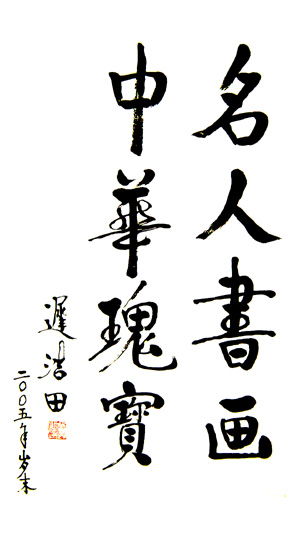 名人書画
中華瑰寶
遲浩田
二〇〇五年岁末